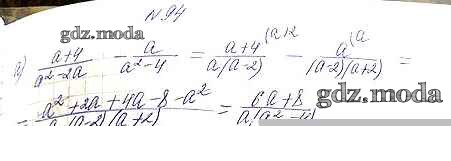 N 94
gdz.moda
a) (a+4)/(a²-2a) - a/(a²-4) = (a+4)/(a(a-2)) (a+2 - a/((a-2)(a+2)) (a =
= (a²+2a+4a-8-a²)/(a(a-2)(a+2)) = (6a+8)/(a(a²-4))
gdz.moda